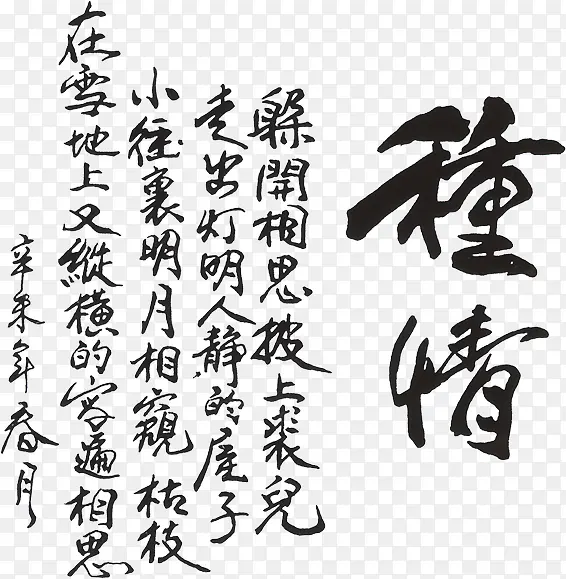 種情
躲開相思披上裘兒
走出灯明人静的屋子
小徑裏明月相窺枯枝
在雪地上又縱横的寫遍相思
辛未年春月